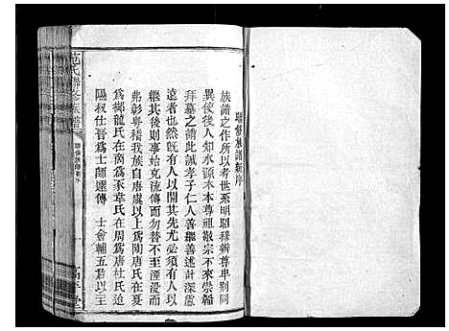 聯修族譜新序
族譜之作所以考世系明昭穆辨尊卑別同
異使後人知水源木本尊祖敬宗不來崇韜
拜墓之誚此誠孝子仁人善繼善述計深慮
遠者也然既有人以開其先尤必須有人以
繼其後則事始克流傳而勿替不至湮沒而
弗彰粵稽我族自唐虞以上爲陶唐氏在夏
爲御龍氏在商爲豕韋氏在周爲唐杜氏迨
隰叔仕晉爲士師遞傳 士會輔五君以主
范氏聯修族譜